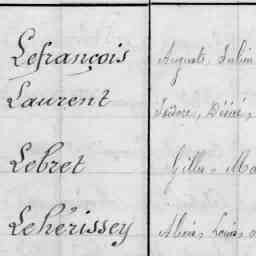 Lefrançois Auguste, Julien
Laurent Isidore, Désiré,
Lebret Gilles, Ma
Lehérissey Louis,